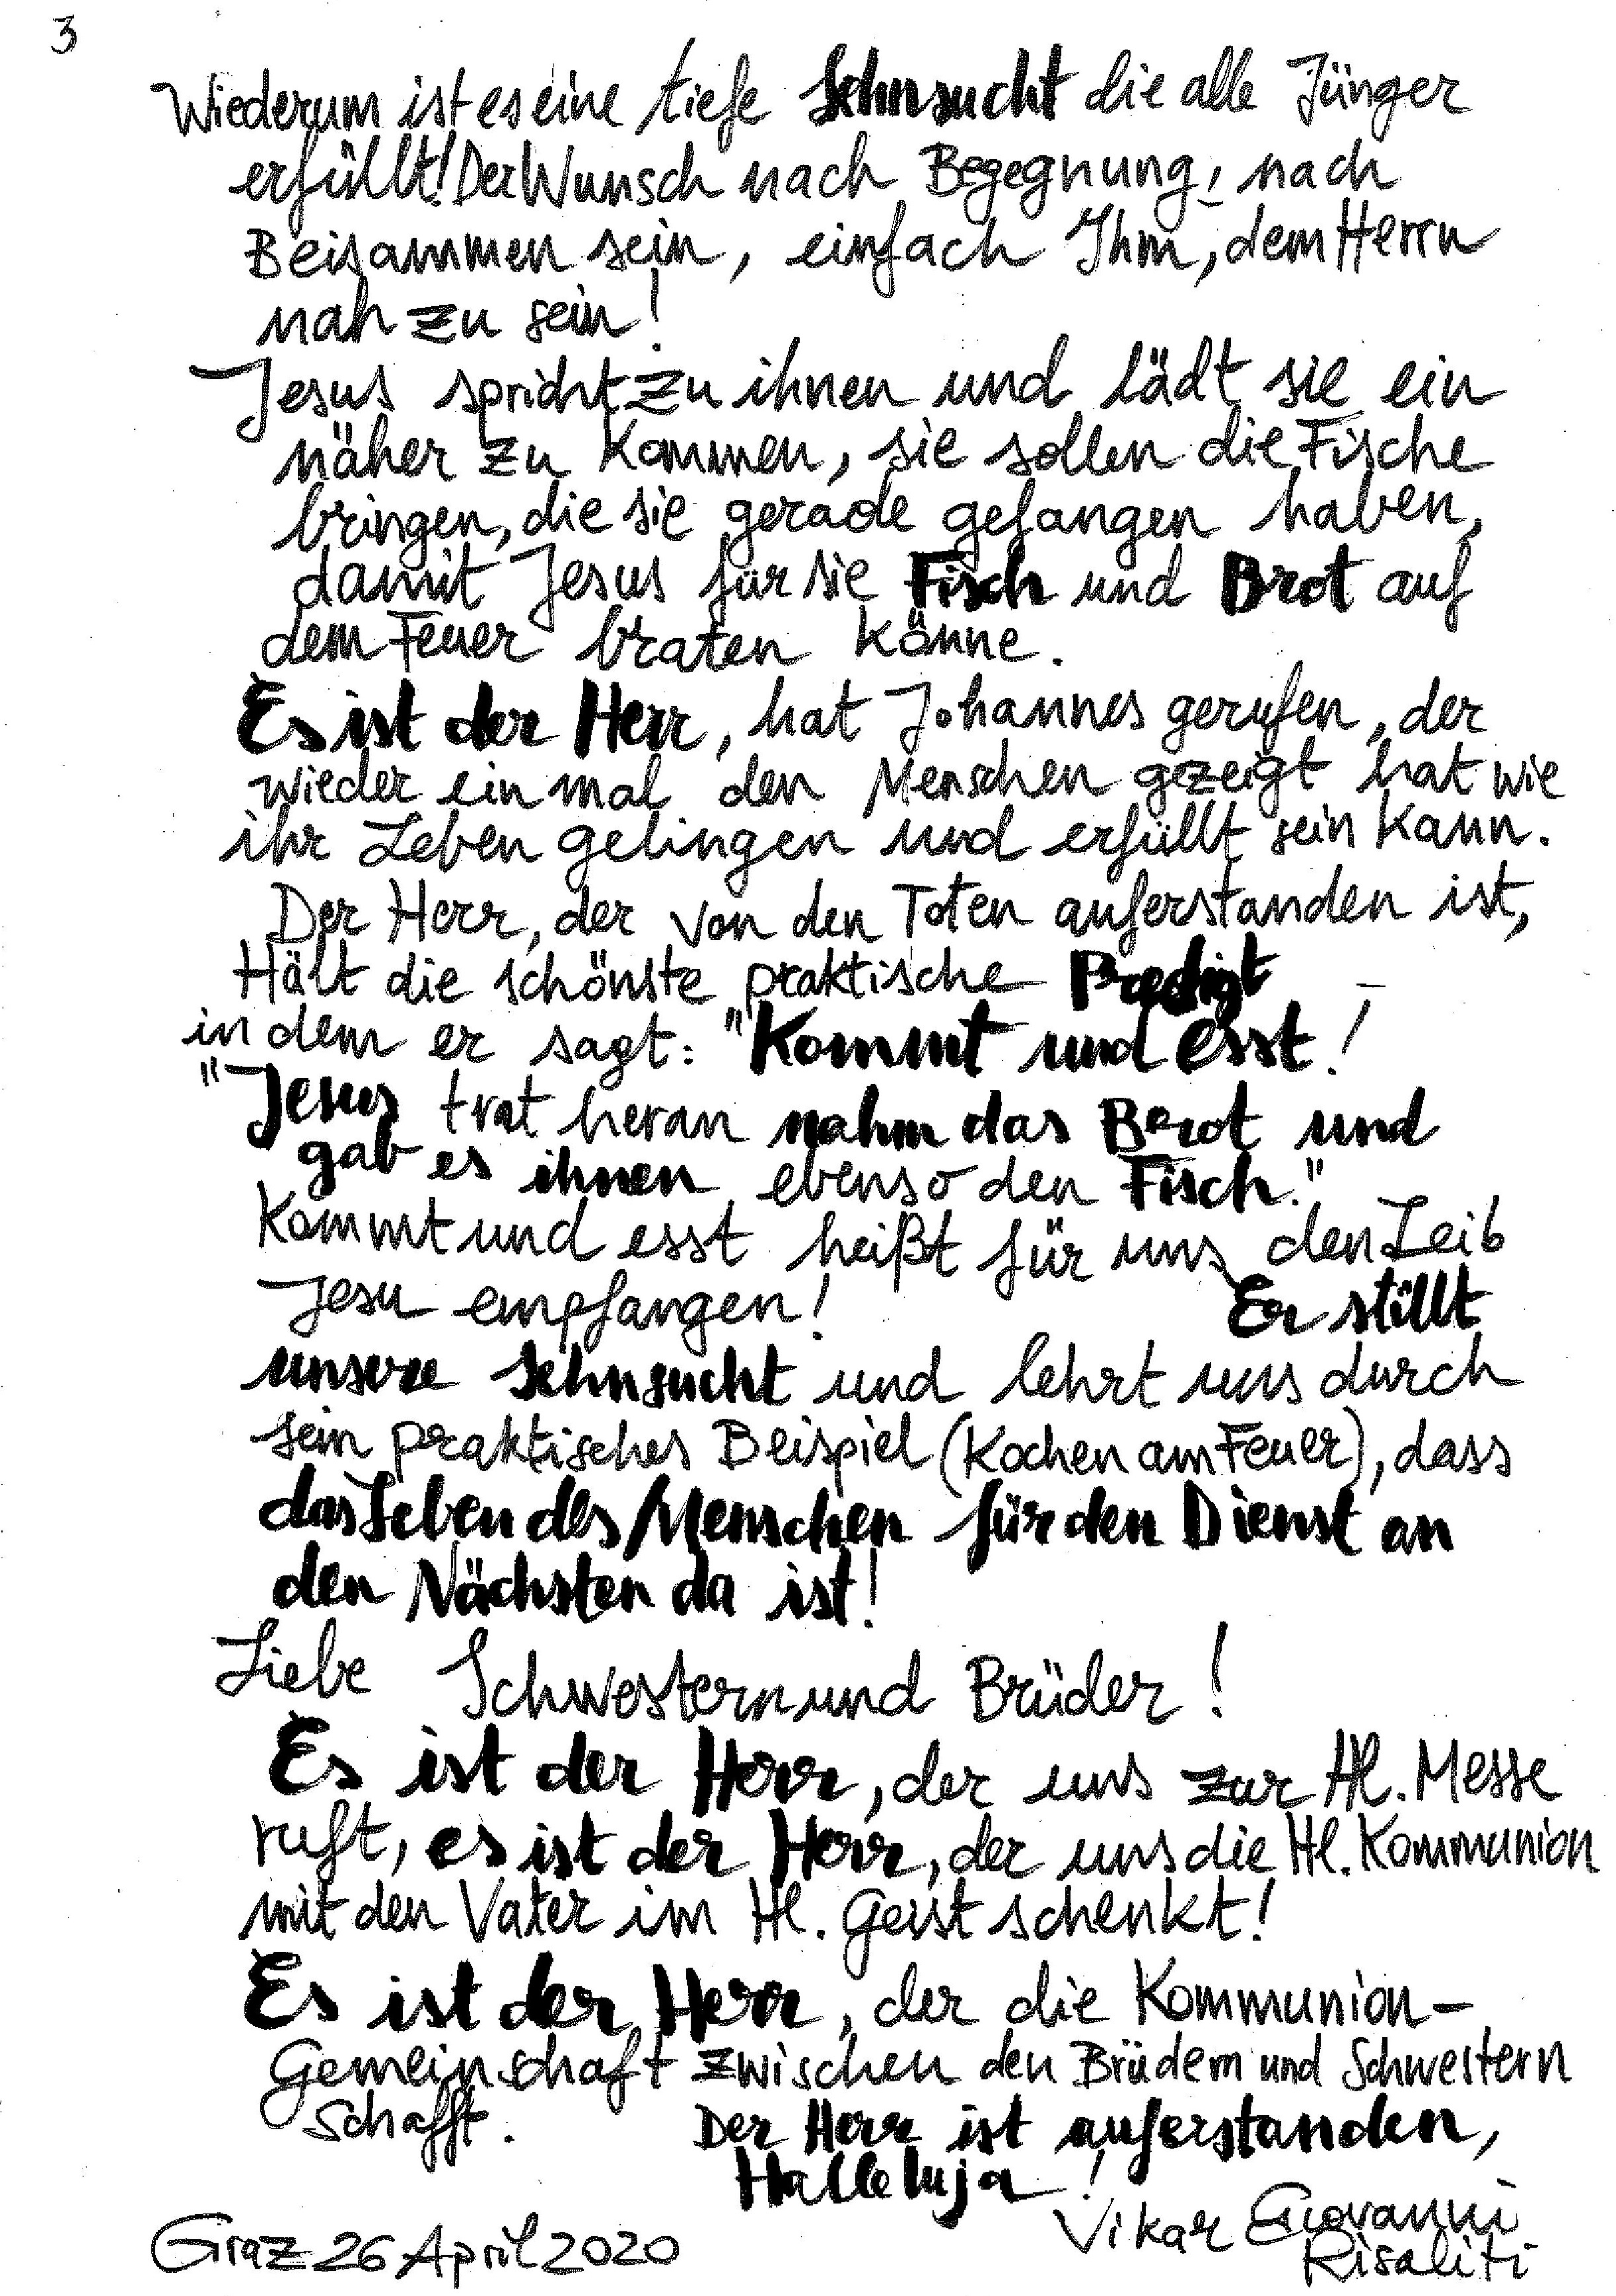 3
Wiederum ist es eine tiefe Sehnsucht die alle Jünger
erfüllt! Der Wunsch nach Begegnung, nach
Beisammen sein, einfach Ihm, dem Herrn
nah zu sein!
Jesus spricht zu ihnen und lädt sie ein
näher zu Kommen, sie sollen die Fische
bringen, die sie gerade gefangen haben,
damit Jesus für sie Fisch und Brot auf
dem Feuer braten könne.
Es ist der Herr, hat Johannes gerufen, der
wieder einmal den Menschen gezeigt hat wie
ihr Leben gelingen und erfüllt sein kann.
Der Herr, der von den Toten auferstanden ist,
Hält die schönste praktische Predigt
in dem er sagt: "Kommt und esst!
"Jesus trat heran nahm das Brot und
gab es ihnen ebenso den Fisch."
Kommt und esst heißt für uns den Leib
Jesu empfangen! Er stillt
unsere Sehnsucht und lehrt uns durch
sein praktisches Beispiel (Kochen am Feuer), dass
das Leben des Menschen für den Dienst an
den Nächsten da ist!
Liebe Schwestern und Brüder!
Es ist der Herr, der uns zur Hl. Messe
ruft, es ist der Herr, der uns die Hl. Kommunion
mit den Vater im Hl. Geist schenkt!
Es ist der Herr, der die Kommunion-
Gemeinschaft zwischen den Brüdern und Schwestern
Schafft. Der Herr ist auferstanden,
Halleluja!
Vikar Giovanni
Graz 26 April 2020 Risaliti